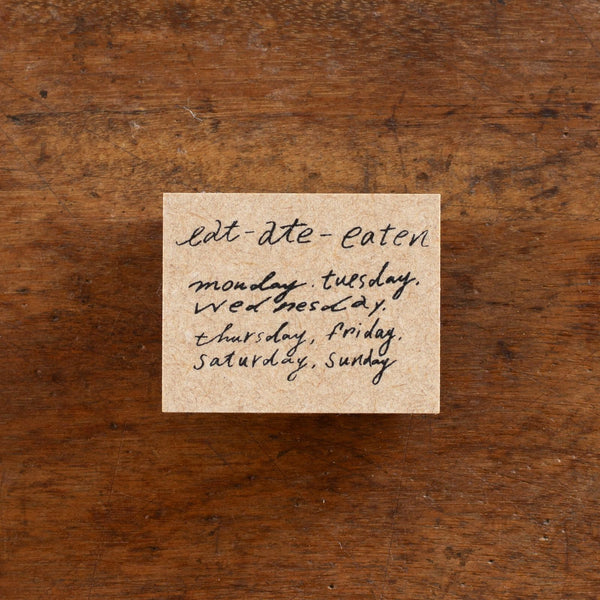 eat-ate-eaten
monday. tuesday.
wednesday.
thursday, friday.
saturday, sunday